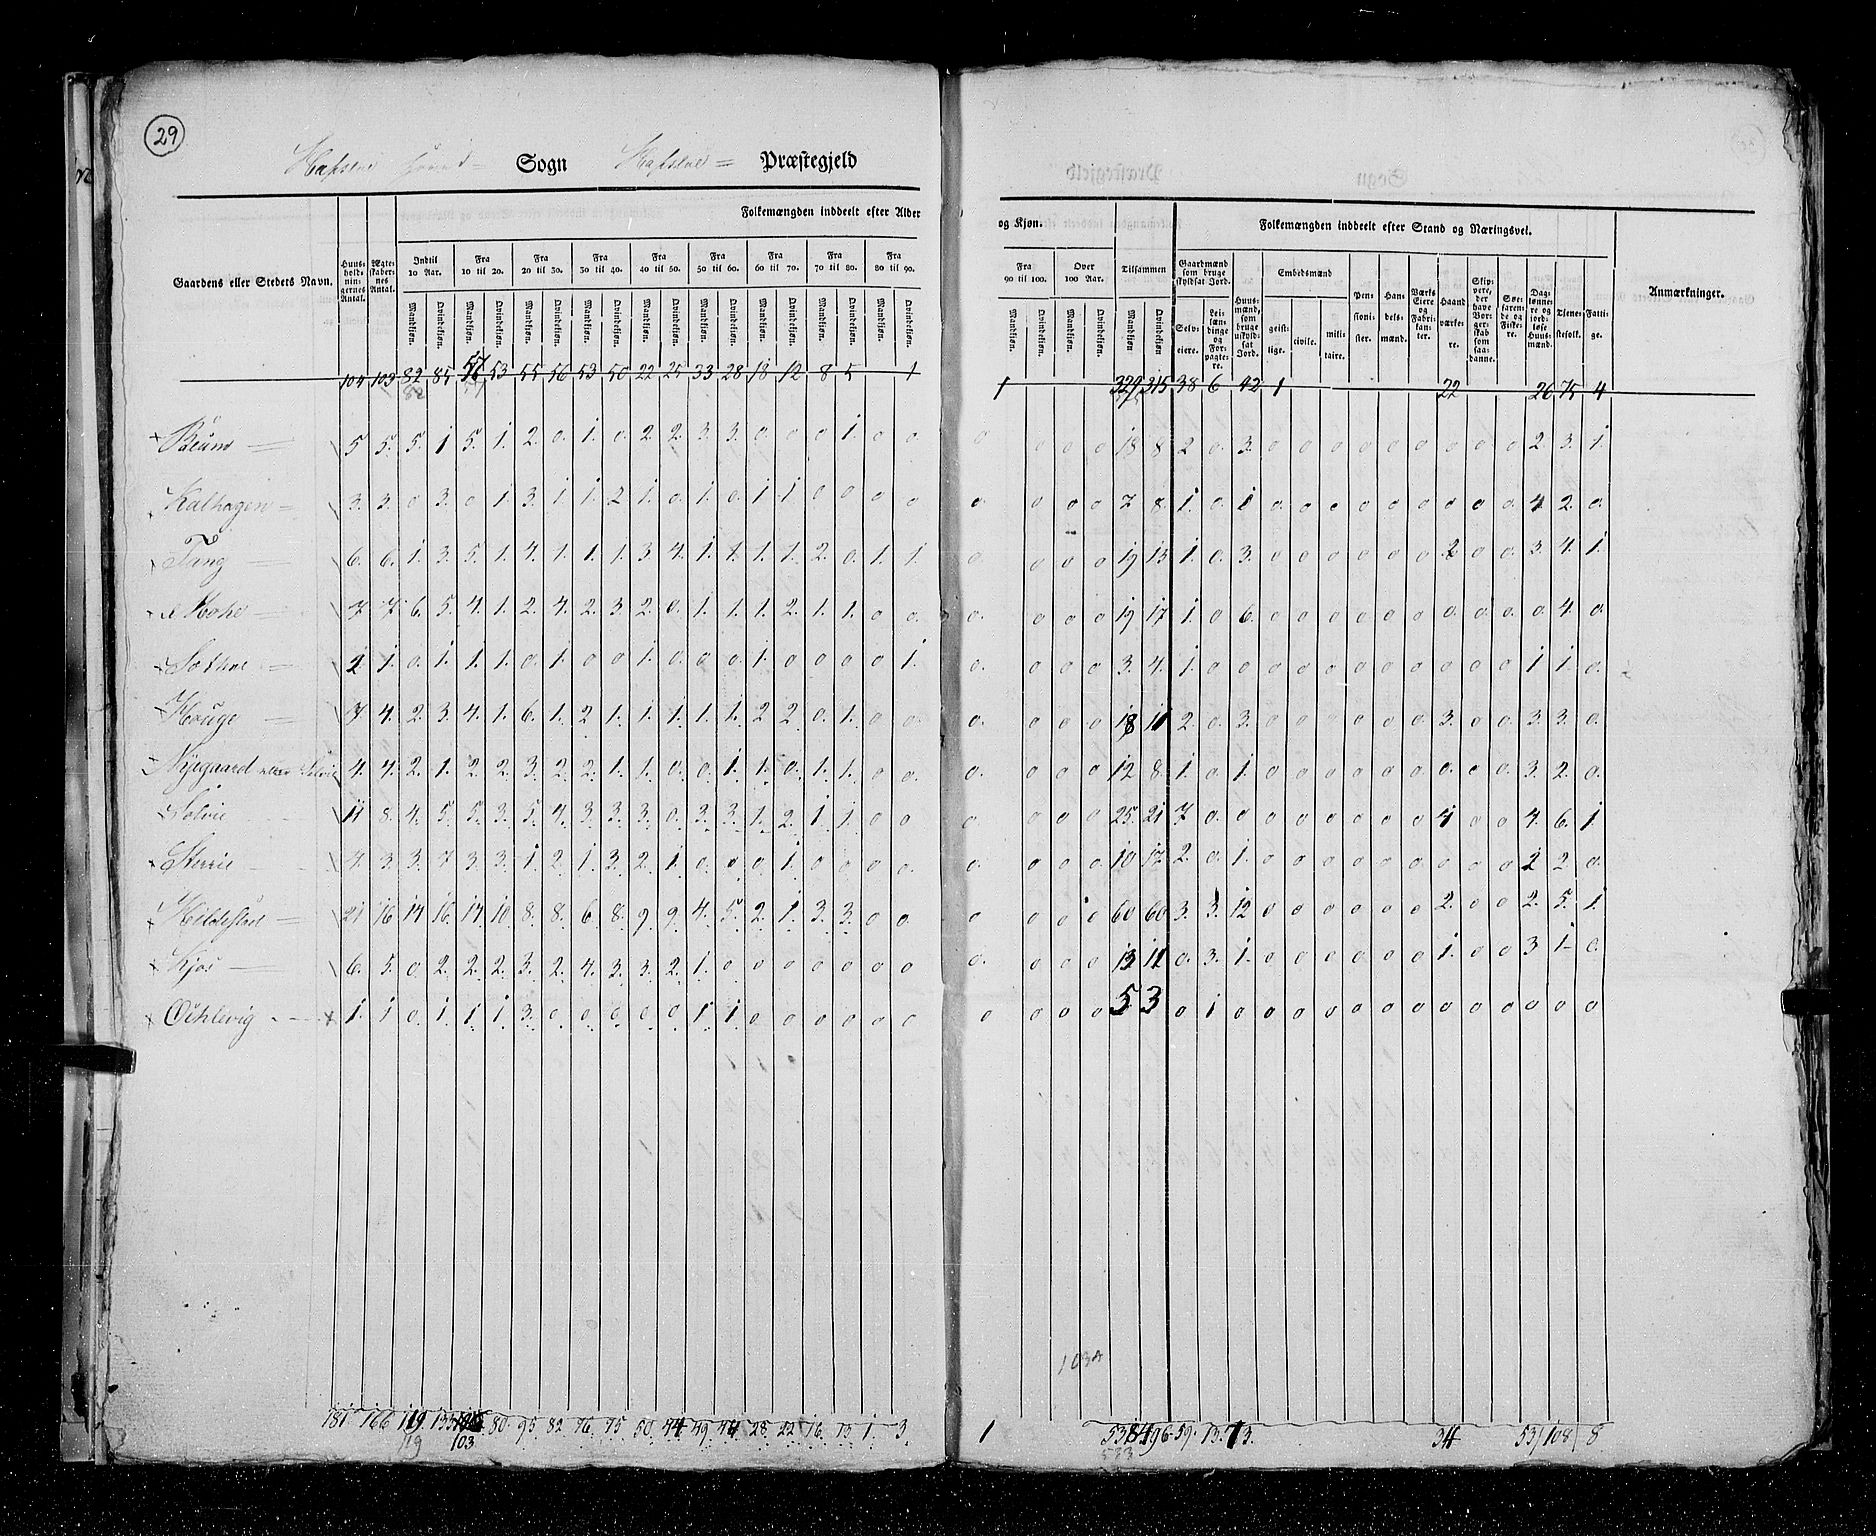 29
Hafsloe Sogn Hafsloe Præstegjeld
Gaardens eller Stedets Navn.
Huus-holdnin-gernes Antal.
Ægte-skaber-nes Antal.
Folkemængden inddeelt efter Alder og Kjøn.
Indtil 10 Aar. Fra 10 til 20. Fra 20 til 30. Fra 30 til 40. Fra 40 til 50. Fra 50 til 60. Fra 60 til 70. Fra 70 til 80. Fra 80 til 90. Fra 90 til 100. Over 100 Aar. Tilsammen
Mandkjøn. Qvindekjøn.
Folkemængden inddeelt efter Stand og Næringsvei.
Gaardmænd som bruge skyldsat Jord.
Selv-eiere.
Lei-læn-dinge og For-pagte-re.
Huus-mænd, som bruge uskyld-sat Jord.
Embedsmænd
geist-lige. civile. mili-taire.
Pen-sioni-ster.
Han-dels-mænd.
Værks Eiere og Fabri-kan-ter.
Haand værke-re.
Skip-pere, der have Bor-ger-skab som saa-danne.
Søe-farende og Fiske-re.
Dag-lønne-re og jord-løse Huus-mænd.
Tjene-stefolk.
Fatti-ge.
Anmærkninger.
104 103 82 85 57 53 55 56 53 50 22 25 33 28 18 12 8 5 1 1 329 315 38 6 42 1 22 26 75 4
5 5. 5. 1 5. 1. 2. 0. 1. 0. 2 2. 3. 3. 0. 0. 0 1. 0 0. 0 0 0 0 18 8 2 0. 3. 0 0 0 0 0 0 0 0 0 2. 3. 1.
Kalhagen 3. 3. 0 3. 0 1. 3. 1. 1. 2 1. 0. 1. 0. 1. 1. 0 0 0 0 0. 0 0 0 7 8. 1. 0 1 0. 0 0 0 0 0 0 0 0 0. 4 2. 0.
Tang 6. 6. 1. 3. 5. 1. 4. 1. 1. 1. 3 4. 1. 1. 1. 1. 2. 0. 1. 1. 0. 0 0 0 19 13 1. 0. 3. 0 0 0 0 0 0 0 2 0 0. 3. 4. 1.
7 7. 6. 5. 4. 1. 2. 4. 2. 3. 2. 0. 1. 1. 1. 2. 1. 1. 0 0. 0. 0 0 0 19 17 1. 0 6. 0 0 0 0 0 0 0 0. 0. 0. 0. 4. 0.
2 1. 0. 1. 1. 1. 0. 1. 0 0 1. 0. 0 0. 1. 0 0 0 0 1. 0. 0 0 0 3. 4. 1. 0 0 0 0 0 0 0 0 0 0 0 0 1 1. 0.
Houge 7 4. 2. 3. 4. 1. 6. 1. 2 1. 1. 1. 1. 1. 2 2. 0. 1. 0 0. 0. 0 0 0 18 11 2. 0. 3. 0 0 0 0 0 0 0 3. 0 0 3. 3. 0.
Nyegaard 4. 4. 2. 1. 2 2. 3. 2. 2. 1. 1. 0. 0 1. 1. 0. 1. 1. 0 0. 0. 0 0 0 12 8. 1. 0 1. 0 0 0 0 0 0 0 0. 0 0. 3. 2. 0.
Solvie 11 8. 4. 5. 5. 3. 5. 4. 3. 3. 3. 0. 3. 3. 1. 2. 1. 1. 0 0 0. 0 0 0 25. 21 7 0. 0 0 0 0 0 0 0 0 4 0 0 4. 6. 1.
4. 3. 3. 7 3. 3. 1. 2. 1. 3. 2. 1. 0. 0 0. 1. 0 0 0 0. 0. 0 0 0 10 17 2. 0. 1. 0 0 0 0 0 0 0 0 0 0 2 2. 0.
21 16 14 16. 17 10 8. 8. 6. 8. 9 9. 4. 5. 2. 1. 3. 3. 0 0. 0 0 0 0 60 60 3. 3. 12 0 0 0 0 0 0 0 2. 0 0 2. 5. 1.
Kjos 6. 5. 0 2. 2. 2. 3. 2. 4. 3. 3. 2. 1. 0 0 0 0 0 0 0 0. 0 0 0 13 11 0. 3. 1. 0 0 0 0 0 0 0 1. 0 0 3 1. 0.
Oehlevig 1. 1 0. 1. 1. 1. 3. 0. 0. 0. 0. 0. 1 1. 0 0 0 0 0 0 0 0 0 0 5 3 0 1 0 0 0 0 0 0 0 0 0 0 0 0 0 0
181 166 119 135 80. 95. 82 76. 75. 50. 44 49. 44 28. 22 16. 13 1. 3. 1 496 59. 13. 73. 34 53 108 8
119 103 533